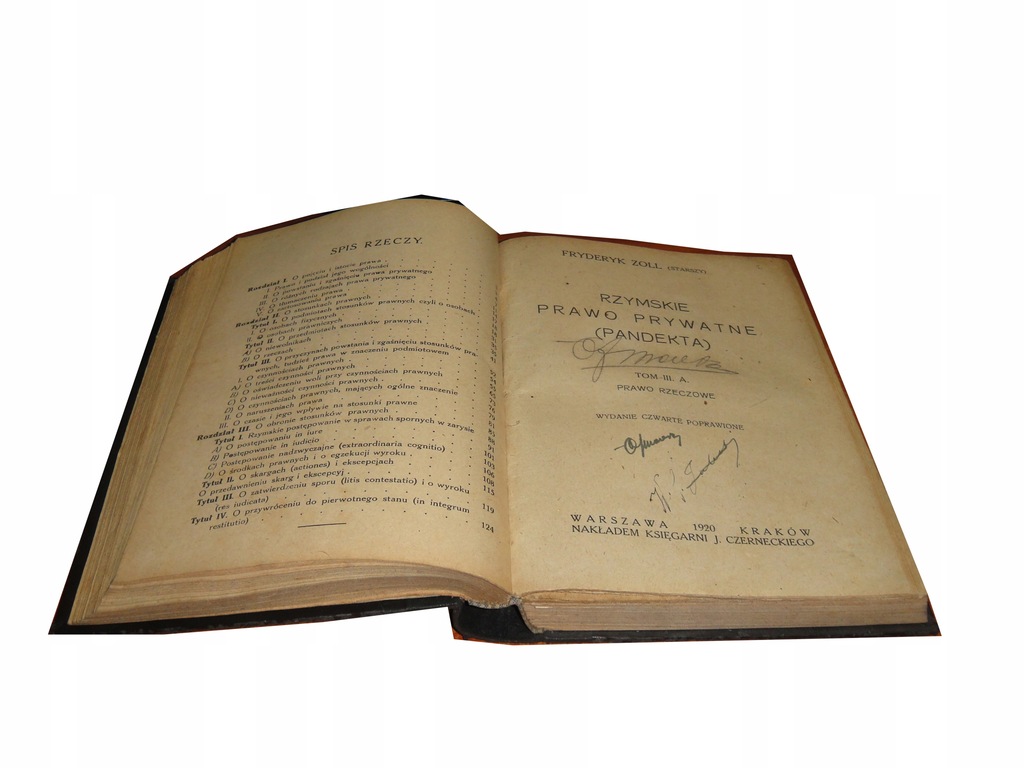 SPIS RZECZY.
Rozdział I. O pojęciu i istocie prawa
I. Prawo i podział jego wogólności
II. O powstaniu i zgaśnięciu prawa prywatnego
III. O różnych rodzajach prawa prywatnego
IV. O tłumaczeniu prawa
V. O zastosowaniu prawa
Rozdział II. O stosunkach prawnych
Tytuł I. O podmiotach stosunków prawnych czyli o osobach
I. O osobach fizycznych
II. O osobach prawniczych
Tytuł II. O przedmiotach stosunków prawnych
A) O niewolnikach
B) O rzeczach 41
Tytuł III. O przyczynach powstania i zgaśnięciu stosunków pra-
wnych, tudzież prawa w znaczeniu podmiotowem
I. O czynnościach prawnych
A) O treści czynności prawnych
B) O oświadczeniu woli przy czynnościach prawnych
C) O nieważności czynności prawnych
D) O czynnościach prawnych, mających ogólne znaczenie
II. O naruszeniach prawa
III. O czasie i jego wpływie na stosunki prawne
Rozdział III. O obronie stosunków prawnych
Tytuł I. Rzymskie postępowanie w sprawach spornych w zarysie
A) O postępowaniu in iure
B) Postępowanie in iudicio
C) Postępowanie nadzwyczajne (extraordinaria cognitio) 101
D) O środkach prawnych i o egzekucji wyroku 103
Tytuł II. O skargach (actiones) i ekscepcjach 106
O przedawnieniu skarg i ekscepcyj 108
Tytuł III. O zatwierdzeniu sporu (litis contestatio) i o wyroku 115
(res iudicata) 119
Tytuł IV. O przywróceniu do pierwotnego stanu (in integrum
restitutio) 124
FRYDERYK ZOLL (STARSZY)
RZYMSKIE
PRAWO PRYWATNE
(PANDEKTA)
TOM III. A.
PRAWO RZECZOWE
WYDANIE CZWARTE POPRAWIONE
WARSZAWA 1920 KRAKÓW
NAKŁADEM KSIĘGARNI J. CZERNECKIEGO